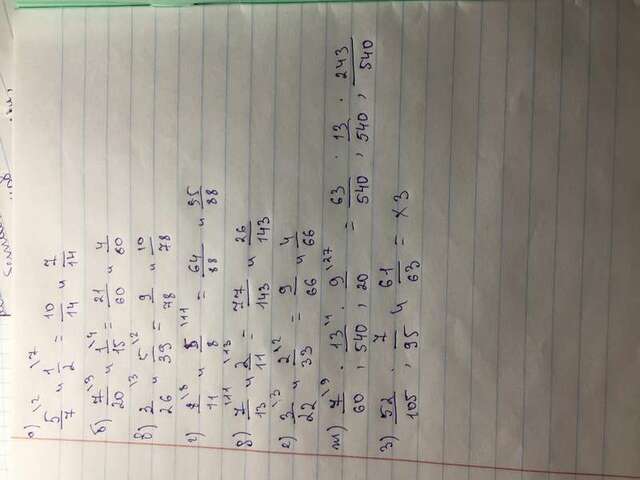 а) 5/7 \2 и 1/2 \7 = 10/14 и 7/14
б) 7/20 \3 и 1/15 \4 = 21/60 и 4/60
в) 3/26 \3 и 5/39 \2 = 9/78 и 10/78
г) /11 \8 и 5/8 \11 = 64/88 и 55/88
д) 7/13 \11 и 2/11 \13 = 77/143 и 26/143
е) 3/22 \3 и 2/33 \2 = 9/66 и 4/66
ж) 7/60 \9 ; 13/540 \1 ; 9/20 \27 = 63/540 ; 13/540 ; 243/540
з) 52/105 ; 7/95 и 61/63 = хз